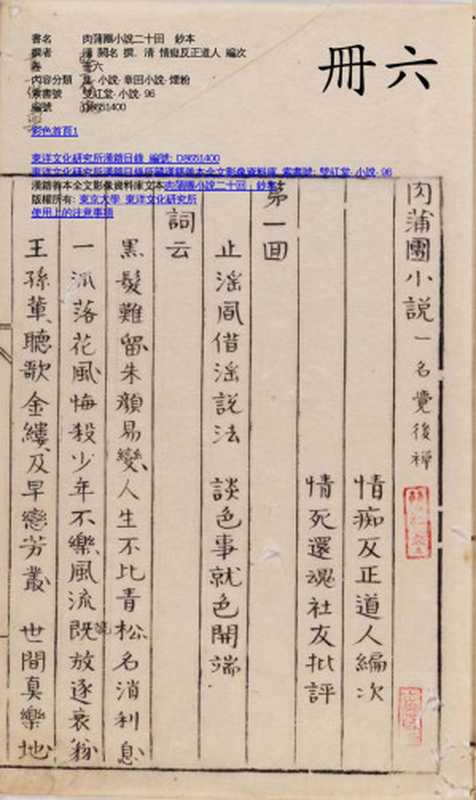 書名 肉蒲團小說二十回 鈔本
撰者 清 闕名 撰, 清 情癡反正道人 編次
卷 卷六
內容分類 集-小說-章回小說-煙粉
索書號 雙紅堂-小說-96
編號 D8651400
彩色首頁1
東洋文化研究所漢籍目錄 編號: D8651400
東洋文化研究所漢籍目錄所藏漢籍善本全文影像資料庫 索書號: 雙紅堂-小說-96
漢籍善本全文影像資料庫文本肉蒲團小說二十回, 鈔本
版權所有: 東京大學 東洋文化研究所
使用上的注意事項
六冊
肉蒲團小說 一名覺後禪
情痴反正道人編次
情死還魂社友批評
第一回
止淫風借淫說法 談色事就色開端
詞云
黑髮難留朱顏易變人生不比青松名消利息
一派落花風悔殺少年不樂風流既放逐衰翁
王孫輩聽歌金縷及早戀芳叢 世間真樂地